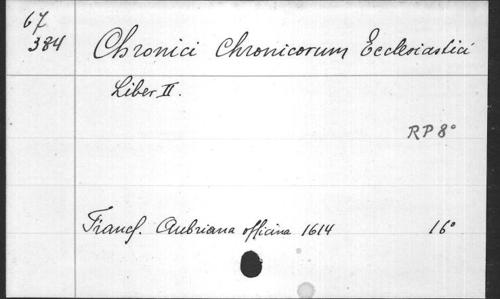 67
384
Chronici Chronicorum Ecclesiastici
Liber II.
RP 8°
Francf. Aubriana officina 1614 16°